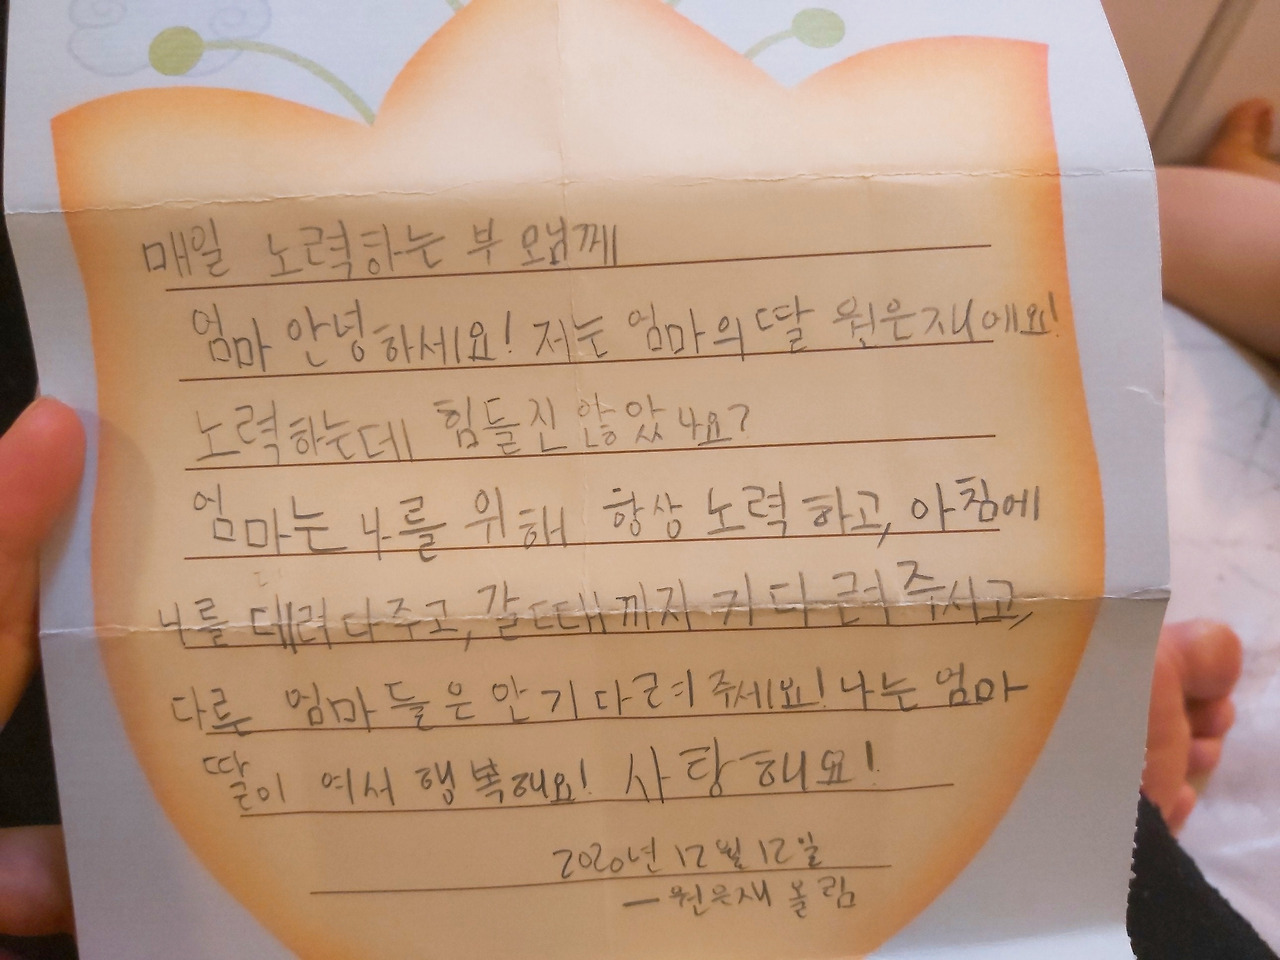 매일 노력하는 부모님께
엄마 안녕하세요! 저는 엄마의 딸 원은재에요!
노력하는데 힘들진 않았나요?
엄마는 나를 위해 항상 노력하고, 아침에
나를 데려다주고, 갈때까지 기다려주시고,
다른 엄마들은 안기다려주세요! 나는 엄마
딸이여서 행복해요! 사탕해요!
2020년 12월 12일
-원은재 올림